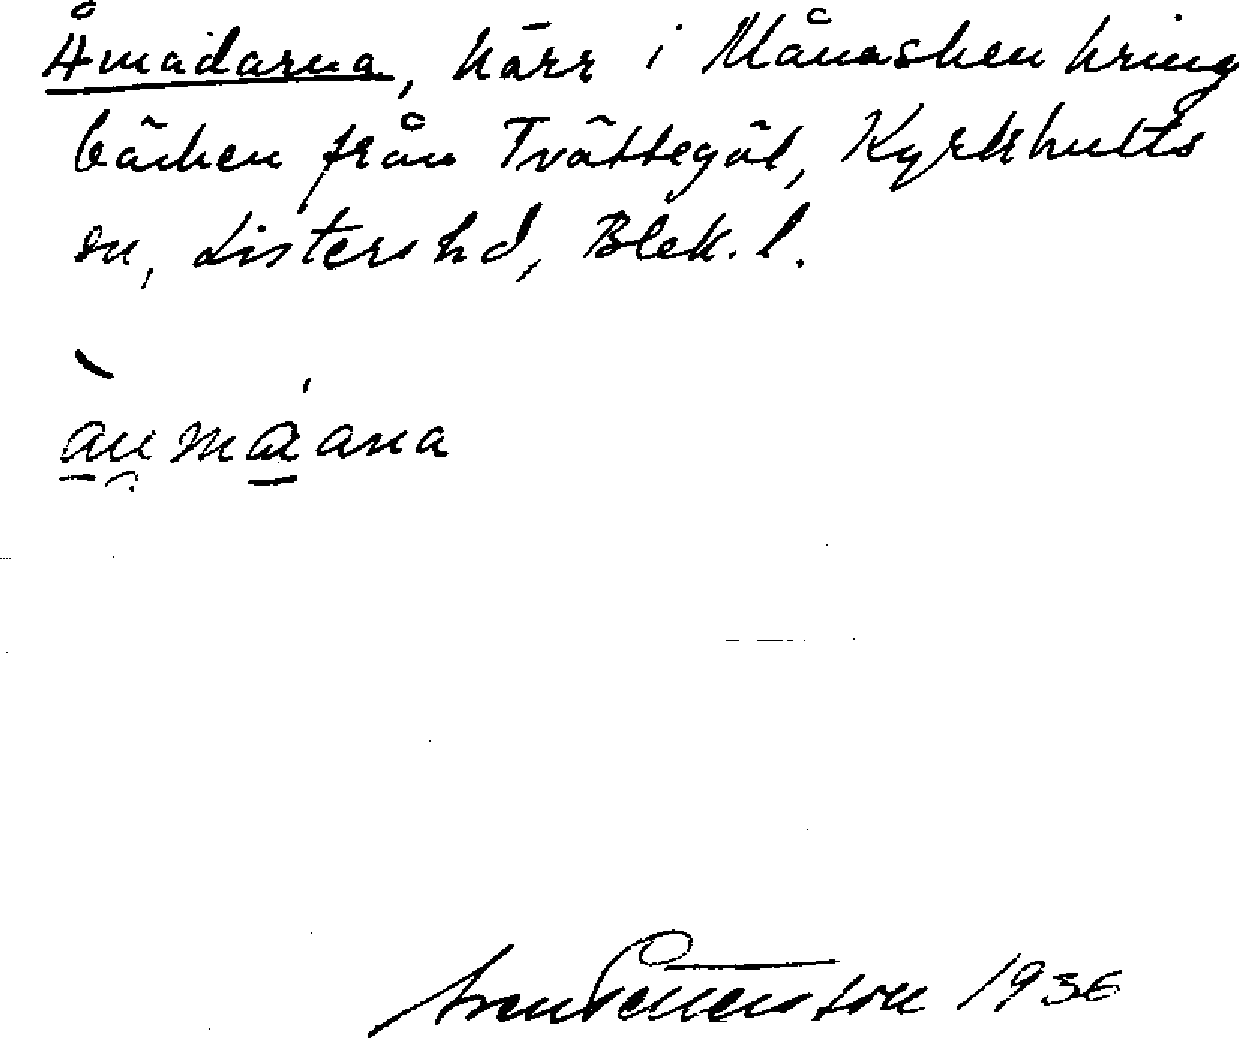 Åmadarna, kärr i Månasken kring
bäcken från Tvättegöl, Kyrkhults
sn, Listers hd, Blek. l.
au mai ana
Sven Pettersson 1936